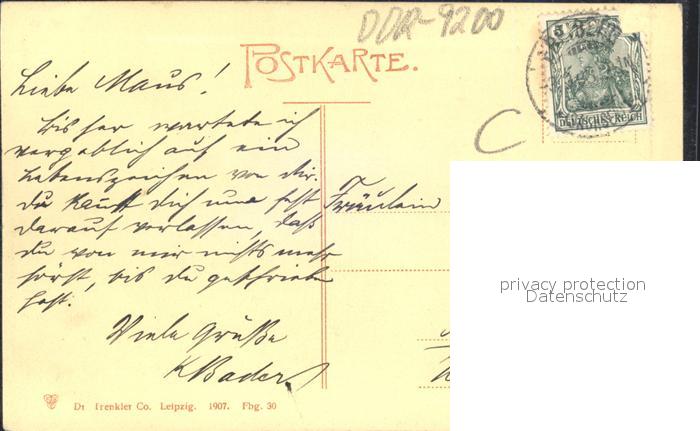 DDR-9200
POSTKARTE.
Liebe Maus!
Bisher wartete ich
vergeblich auf ein
Lebenszeichen von dir.
Du kannst dich nun fest
darauf verlassen, daß
du von mir nichts mehr
hörst, bis du geschrieben
hast.
Viele Grüße
K Bader
Fräulein
C
DEUTSCHES REICH
privacy protection
Datenschutz
Dr. Trenkler Co. Leipzig. 1907. Fbg. 30